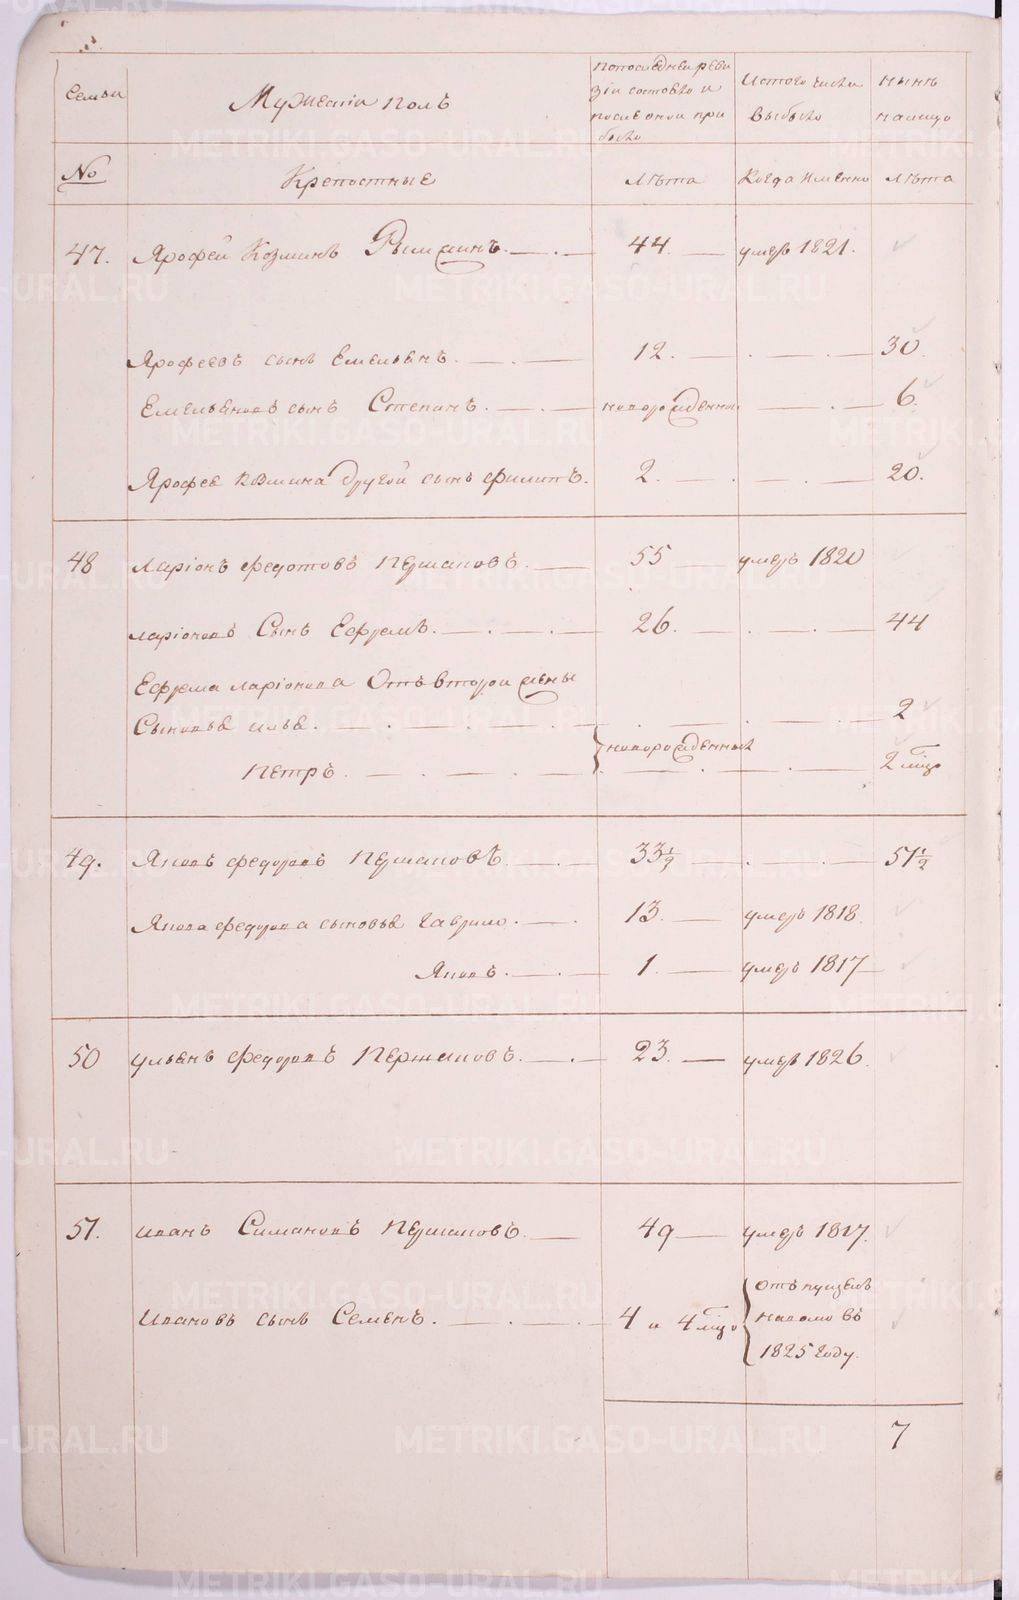 Семьи
Мужескій полъ
Попоследней реви
зіи состояло и
после оной при
было
Истого числа
выбыло
Нынѣ
налицо
№
Крепостные
Лѣта
Когда именно
Лѣта
47. Ярофей Козминъ 44. умеръ 1821.
Ярофеевъ сынъ Емельянъ. 12. 30.
Емельяновъ сынъ Степанъ. новорожденной 6.
Ярофея Козмина другой сынъ Филипъ. 2. 20.
48 Ларіонъ Федотовъ Першановъ. 55 умеръ 1820
Ларіоновъ Сынъ Ефремъ. 26. 44
Ефрема Ларіонова Отъ второй жены
Сыновья Илья. 2
новорожденныя
Петръ. 2 мцо
49. Яковъ Федоровъ Першановъ. 33½ 51½
Якова Федорова сыновья Гаврило. 13. умеръ 1818.
Яковъ. 1. умеръ 1817
50 Ульянъ Федоровъ Першановъ. 23. умеръ 1826.
51. Иванъ Симановъ Першановъ. 49 умеръ 1817.
Ивановъ сынъ Семенъ. 4 и 4 мцо
Отъпущенъ
наволю въ
1825 году.
7
METRIKI.GASO-URAL.RU